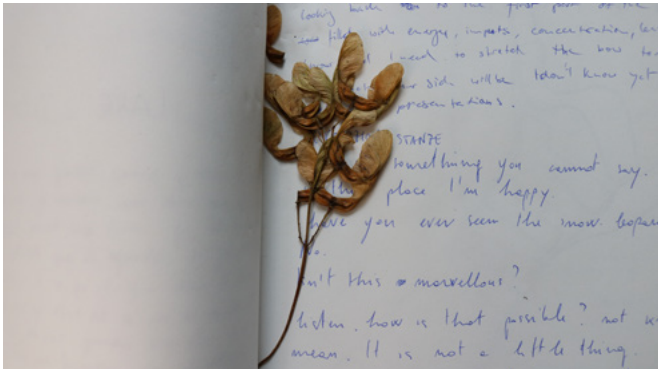 looking back to the first part of the
filled with energy, inputs, concentration,
I need to stretch the bow to
side will be I don't know yet
presentations.
STANZE
something you cannot say.
place I'm happy.
have you ever seen the snow
no.
isn't this marvellous?
listen. how is that possible? not
mean. It is not a little thing.